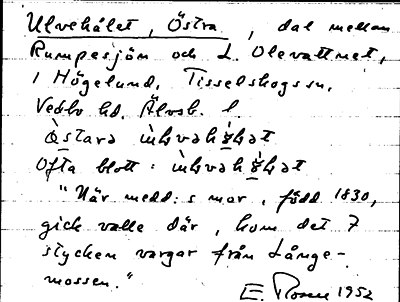 Ulvehålet, Östra, dal mellan
Rumpesjön och L. Olevattnet,
i Högelund, Tisselskogs sn,
Vedbo hd, Älvsb. l.
Ofta blott:
"När medd:s mor, född 1830,
gick valle där, kom det 7
stycken vargar från Långe-
mossen."
E. 1952